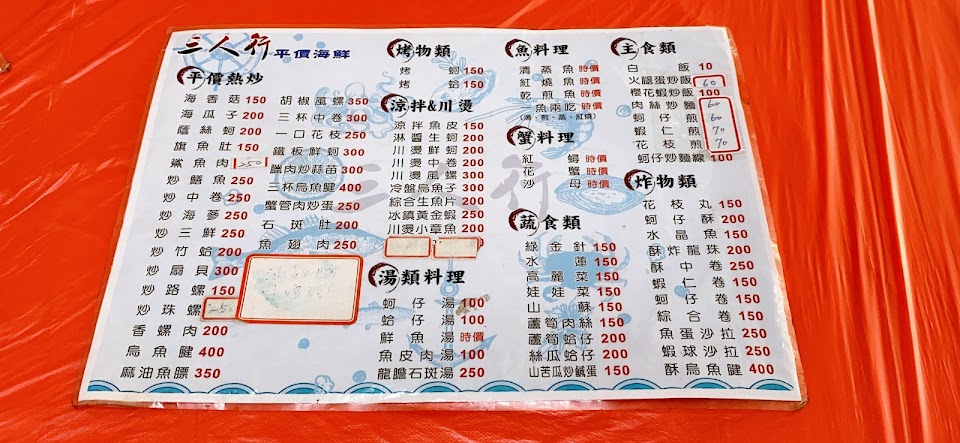 三人行 平價海鮮
平價熱炒
海香菇 150
海瓜子 200
蔭絲蚵 200
旗魚肚 150
鯊魚肉 250
炒鱔魚 250
炒中卷 250
炒海參 250
炒三鮮 250
炒竹蛤 200
炒扇貝 300
炒路螺 150
炒珠螺 250
香螺肉 200
烏魚腱 400
麻油魚膘 350
胡椒風螺 350
三杯中卷 300
一口花枝 250
鐵板鮮蚵 300
臘肉炒蒜苗 300
三杯烏魚腱 400
蟹管肉炒蛋 250
石斑肚 200
魚翅肉 250
烤物類
烤蚵 150
烤蛤 150
涼拌&川燙
涼拌魚皮 150
淋醬生蚵 200
川燙鮮蚵 200
川燙中卷 200
冷盤烏魚子 300
綜合生魚片 200
冰鎮黃金蝦 250
川燙小章魚 200
湯類料理
蚵仔湯 100
蛤仔湯 100
鮮魚湯 時價
魚皮肉湯 100
龍膽石斑湯 250
魚料理
清蒸魚 時價
紅燒魚 時價
乾煎魚 時價
一魚兩吃 時價
(湯、煎、蒸、紅燒)
蟹料理
紅蟳 時價
花蟹 時價
沙母 時價
蔬食類
綠金針 150
水蓮 150
高麗菜 150
娃娃菜 150
山蘇 150
蘆筍肉絲 150
蘆筍蛤仔 200
絲瓜蛤仔 200
山苦瓜炒鹹蛋 150
主食類
白飯 10
火腿蛋炒飯 60
櫻花蝦炒飯 100
肉絲炒麵 60
蚵仔煎 60
蝦仁煎 70
花枝煎 70
蚵仔炒麵線 100
炸物類
花枝丸 150
蚵仔酥 200
水晶魚 150
酥炸龍珠 200
酥中卷 250
蝦仁卷 150
蚵仔卷 150
綜合卷 150
魚蛋沙拉 250
蝦球沙拉 250
酥烏魚腱 400
三人行